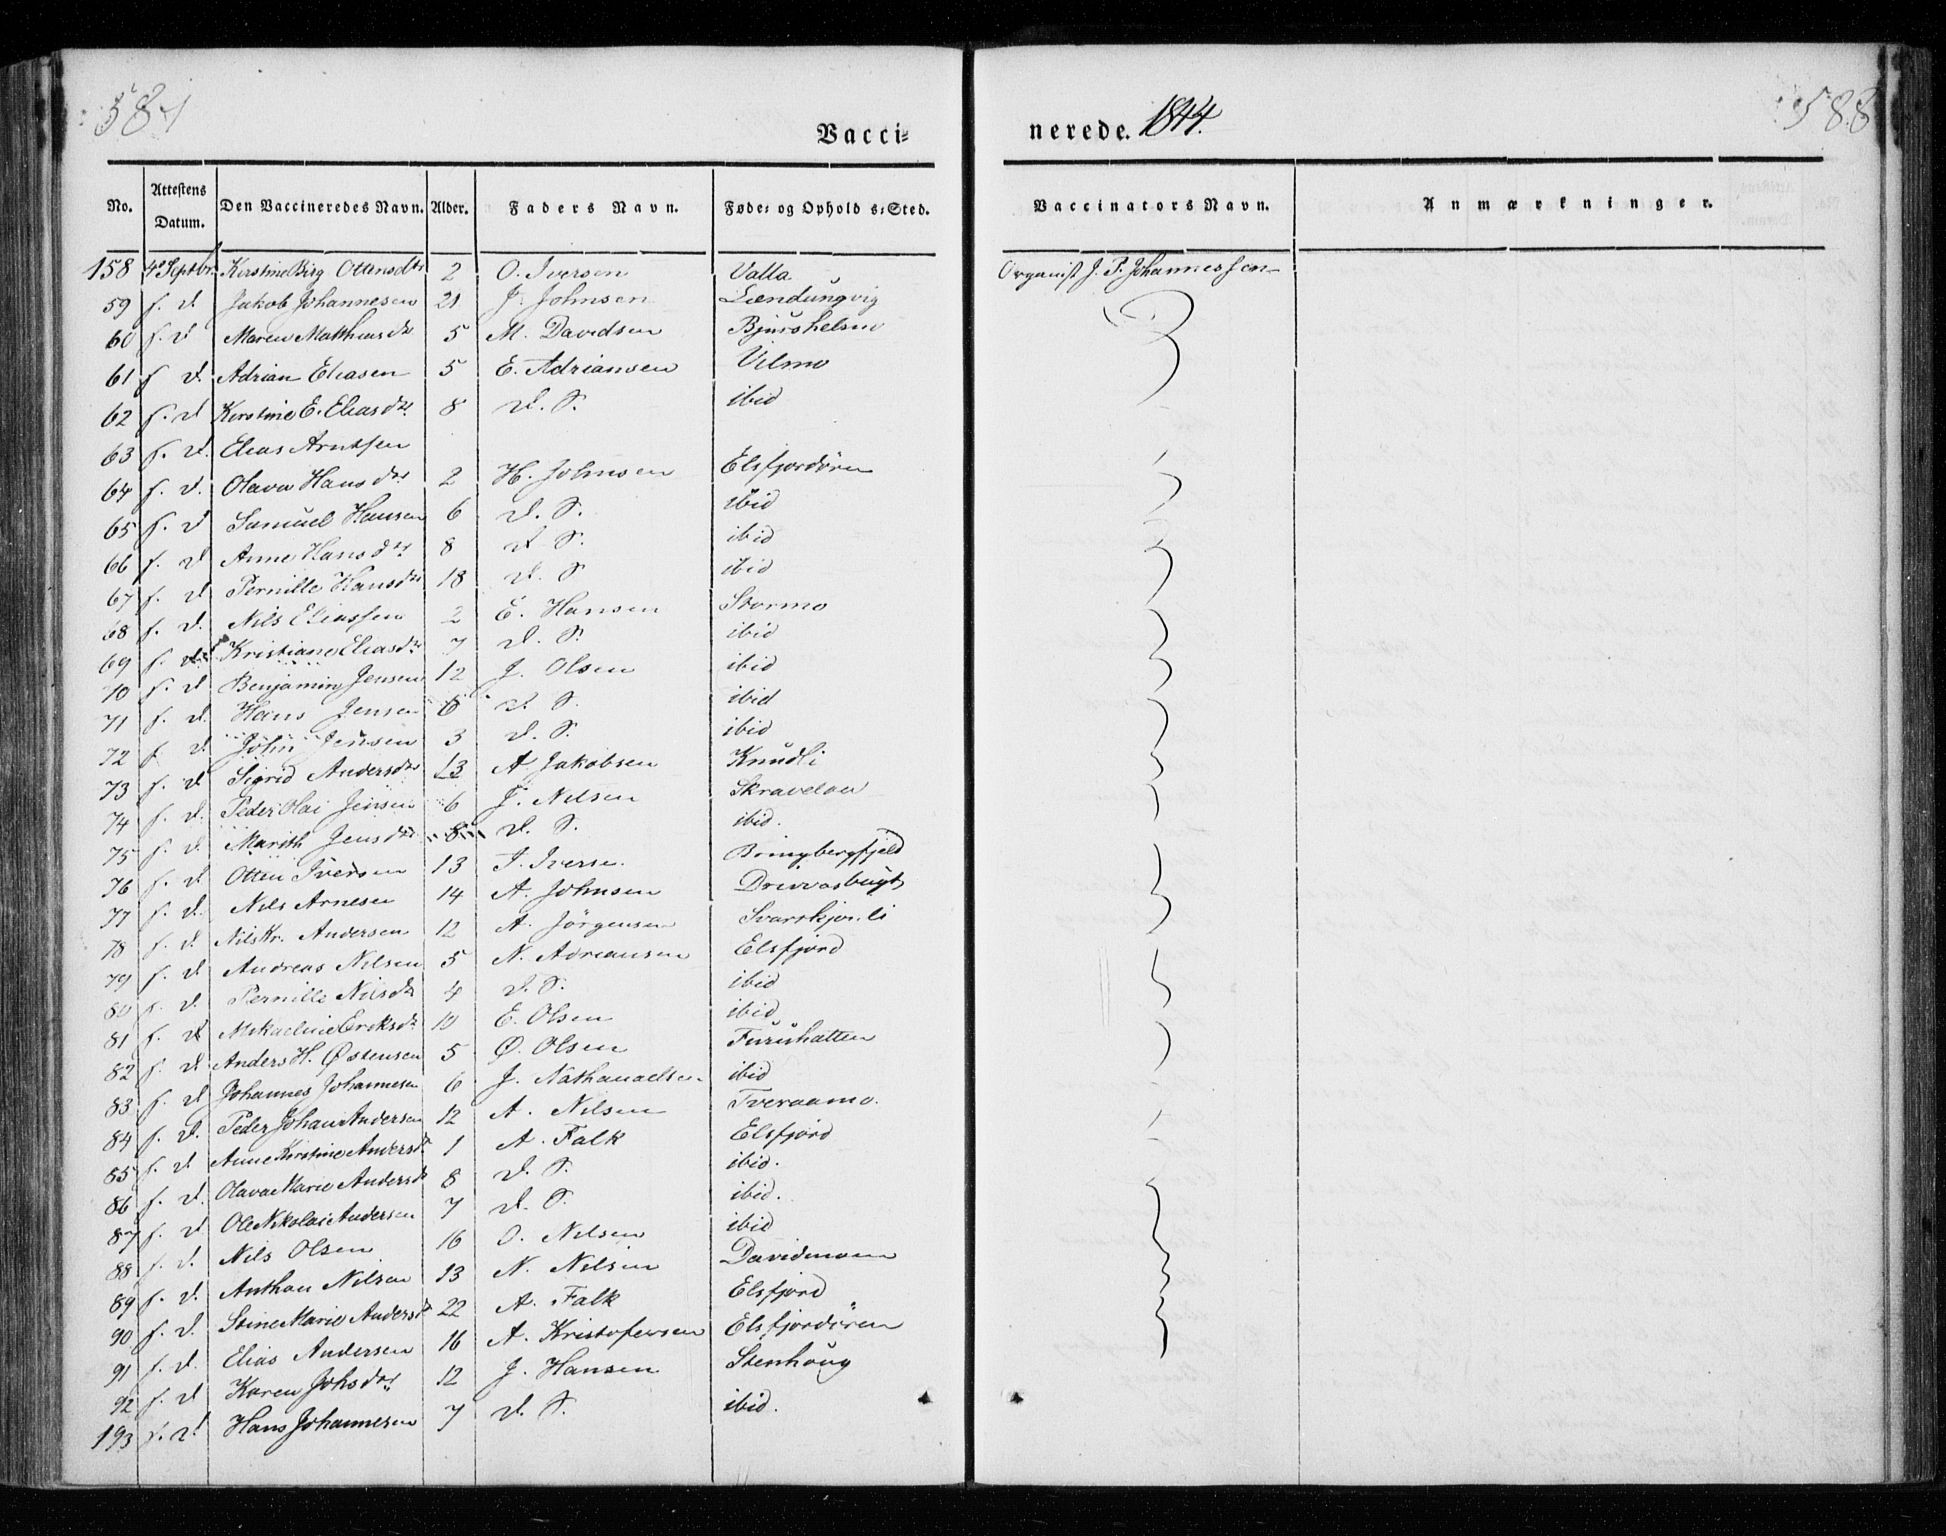 587
588
Vacci=
nerede. 1844.
No. Attestens Datum. Den Vaccineredes Navn. Alder. Faders Navn. Føde= og Opholds=Sted. Vaccinators Navn. Anmærkninger.
158 4de Septbr. Kirstine Birg Ottensdtr 2 O. Iversen Valla Organist J. P. Johannessen
59 s. d. Jakob Johannesen 21 J. Johnsen
60 s. d. Maren Matthiasdtr 5 M. Davidsen
61 s. d. Adrian Eliasen 5 E. Adriansen Vilmo
62 s. d. Kirstine E. Eliasdtr 8 d. S. ibid
63 s. d. Elias Arntsen
64 s. d. Olava Hansdtr 2 H. Johnsen Elsfjordören
65 s. d. Samuel Hansen 6 d. S. ibid
66 s. d. Anne Hansdtr 8 d. S. ibid
67 s. d. Pernille Hansdtr 18 d. S. ibid
68 s. d. Nils Eliassen 2 E. Hansen Stormo
69 s. d. Kristiane Eliasdtr 7 d. S. ibid
70 s. d. Benjamin Jensen 12 J. Olsen ibid
71 s. d. Hans Jensen 8 d. S. ibid
72 s. d. John Jensen 3 d. S. ibid
73 s. d. Sigrid Andersdtr 13 A Jakobsen Knudli
74 s. d. Peder Olai Jensen 6 J. Nilsen Skravelaa
75 s. d. Marith Jensdtr 8 d. S. ibid.
76 s. d. Otten Iversen 13 I. Iversen Bringbergfjeld
77 s. d. Nils Arnesen 14 A. Johnsen Drevvasbugt
78 s. d. Nils Kr. Andersen 12 A. Jörgensen
79 s. d. Andreas Nilsen 5 N. Adriansen Elsfjord
80 s. d. Pernille Nilsdtr 4 d. S. ibid
81 s. d. Mikaeline Eriksdtr 10 E. Olsen ibid
82 s. d. Anders H. Østensen 5 Ø. Olsen Furuhatten
83 s. d. Johannes Johannesen 6 J. Nathanaelsen ibid
84 s. d. Peder Johan Andersen 12 A. Nilsen Tveraamo.
85 s. d. Anne Kirstine Andersdtr 1 A. Falk Elsfjord
86 s. d. Olava Marie Andersdtr 8 d. S. ibid.
87 s. d. Ole Nikolai Andersen 7 d. S. ibid.
88 s. d. Nils Olsen 16 O. Nilsen ibid
89 s. d. Anthon Nilsen 13 N. Nilsen Davidmoen
90 s. d. Stine Marie Andersdtr 22 A. Falk Elsfjord
91 s. d. Elias Andersen 16 A. Kristofersen Elsfjordören
92 s. d. Karen Johsdtr 12 J. Hansen Stenhoug
193 s. d. Hans Johannesen 7 d. S. ibid.